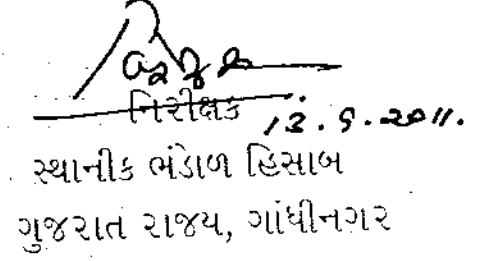 નિરીક્ષક
13.9.2011.
સ્થાનીક ભંડોળ હિસાબ
ગુજરાત રાજ્ય, ગાંધીનગર